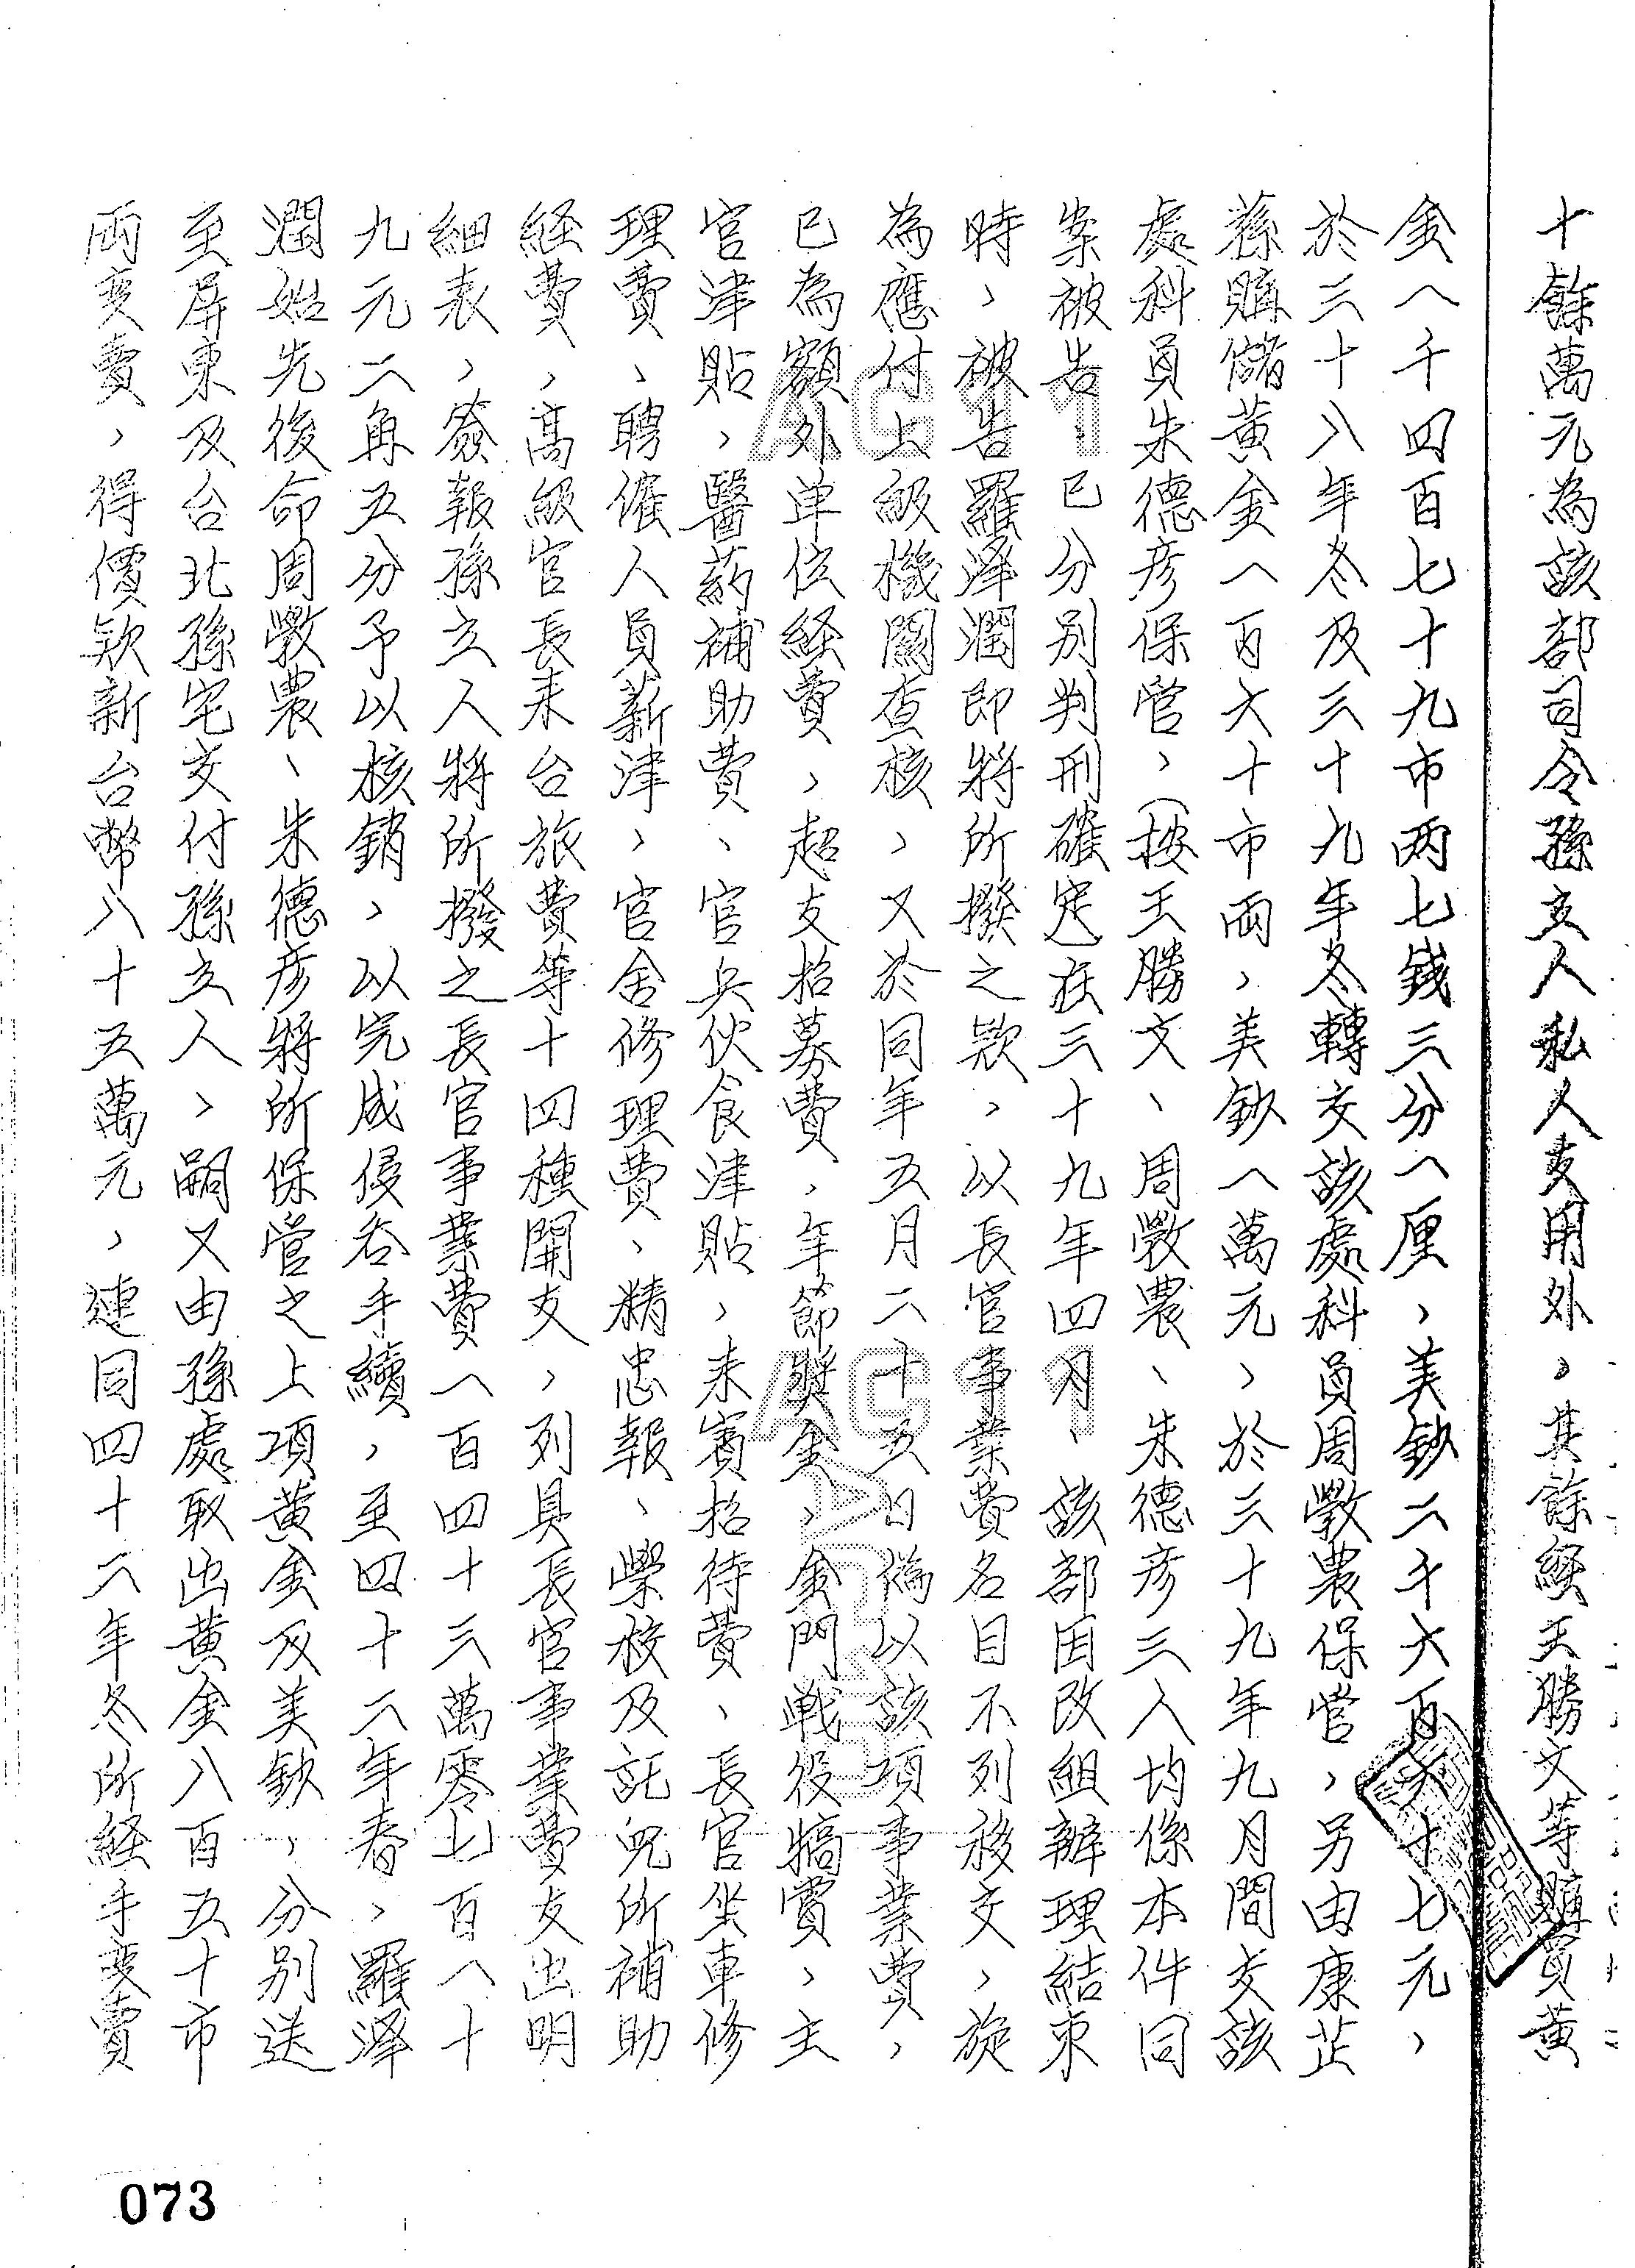 十餘萬元為該部司令孫立人私人支用外，其餘經王勝文等購買黃
金八千四百七十九市两七錢三分一厘，美鈔二千六百六十七元，
於三十八年冬及三十九年冬轉交該處科員周斆農保管，另由康芷
蓀購儲黃金一百六十市兩，美鈔一萬元，於三十九年九月間交該
處科員朱德彥保管，（按王勝文、周斆農、朱德彥三人均係本件同
案被告已分別判刑確定在三十九年四月、該部因改組辦理結束
時，被告羅澤潤即將所撥之欵，以長官事業費名目不列移交，旋
為應付上級機關查核，又於同年五月二十五日偽以該項事業費，
已為額外单位経費，超支招募費，年節獎金、金門戰役犒賞，主
官津貼，醫葯補助費、官兵伙食津貼，来賓招待費、長官坐車修
理費、聘僱人員薪津，官舍修理費、精忠報、學校及託兒所補助
経費，高級官長来台旅費等十四種開支，列具長官事業費支出明
細表，簽報孫立人將所撥之長官事業費一百四十三萬零七百一十
九元二角五分予以核銷，以完成侵吞手續，至四十二年春，羅澤
潤始先後命周斆農、朱德彥將所保管之上項黃金及美鈔，分別送
至屏東及台北孫宅交付孫立人，嗣又由孫處取出黃金八百五十市
兩变賣，得價欵新台幣八十五萬元，連同四十二年冬所経手变賣
073